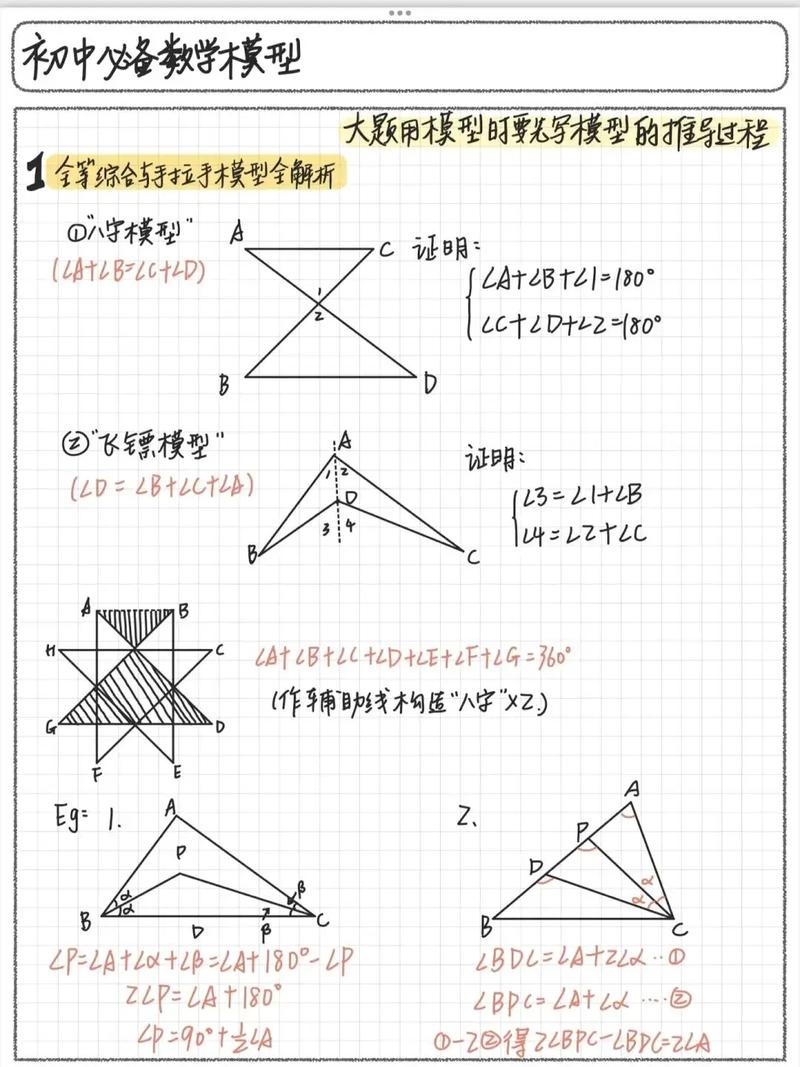 初中必备数学模型
大题用模型时要先写模型的推导过程
1 全等综合与手拉手模型全解析
①"八字模型"
(∠A+∠B=∠C+∠D)
A
C
1
2
B
D
证明:
∠A+∠B+∠1=180°
∠C+∠D+∠2=180°
②"飞镖模型"
(∠D=∠B+∠C+∠A)
A
1 2
D
3 4
B
C
证明:
∠3=∠1+∠B
∠4=∠2+∠C
A B
H C
G D
F E
∠A+∠B+∠C+∠D+∠E+∠F+∠G=360°
(作辅助线构造"八字"×2.)
Eg= 1.
A
P
α
α
β
B
D
β
C
∠P=∠A+∠α+∠β=∠A+180°-∠P
2∠P=∠A+180°
∠P=90°+½∠A
2.
A
P
D
α
α
B
C
∠BDC=∠A+2∠α··①
∠BPC=∠A+∠α····②
①-2②得2∠BPC-∠BDC=2∠A